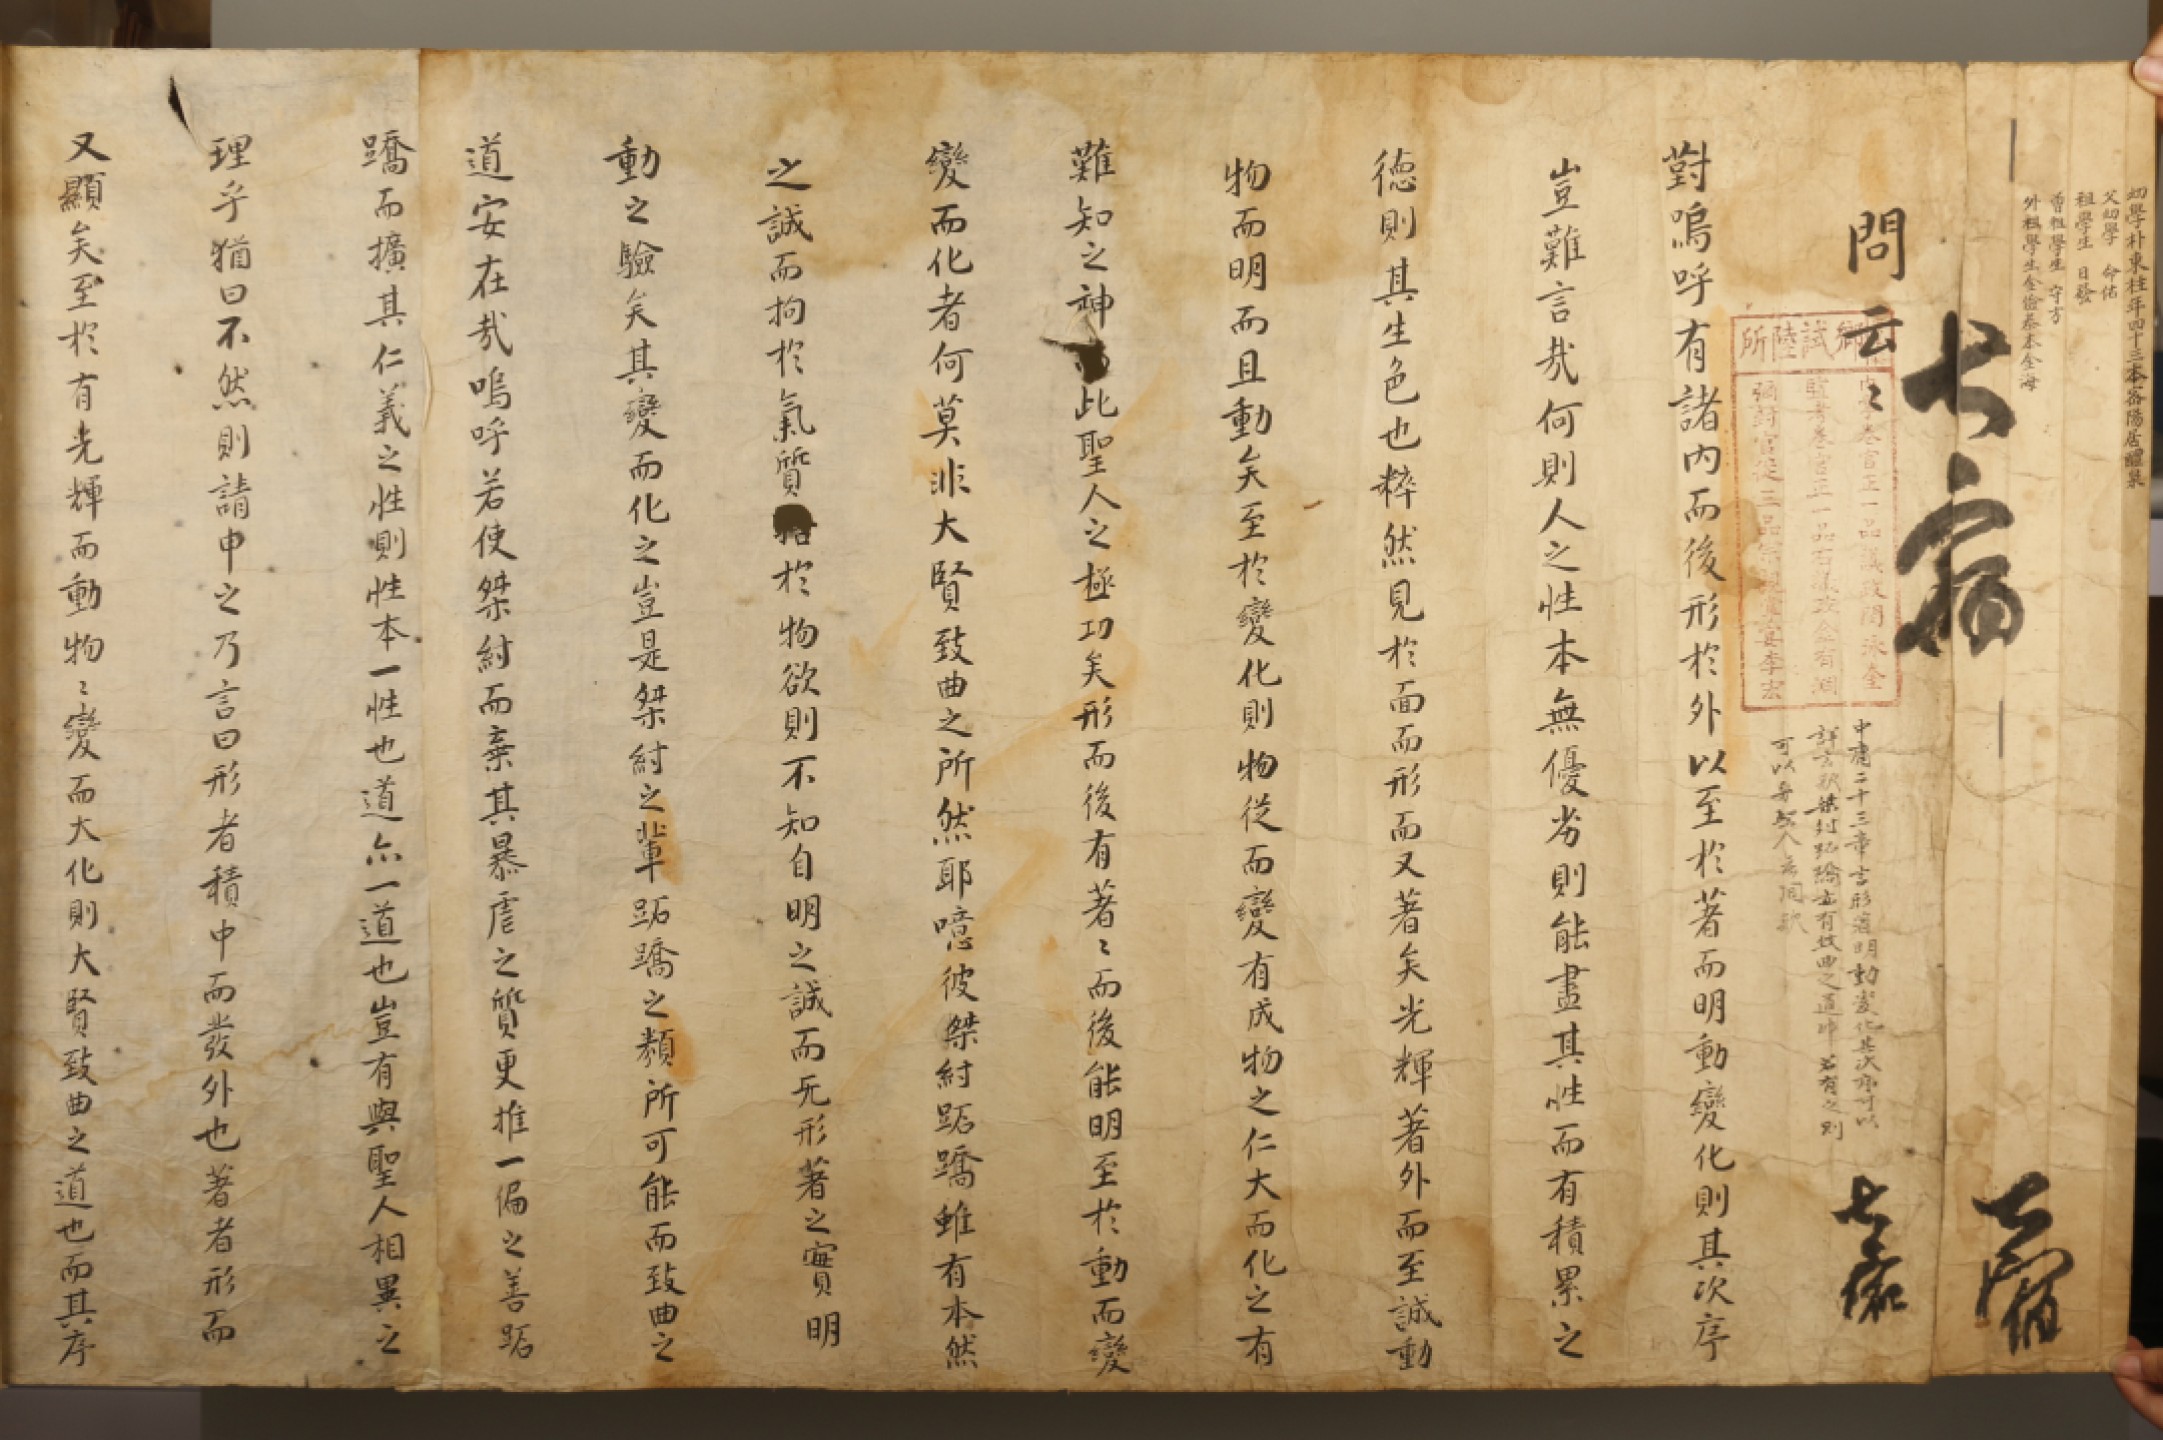 幼學朴東柱年四十三本咸陽居醴泉
父幼學 命佑
祖學生 日發
曾祖學生 守方
外祖學生金儉泰本金海
七宿
七
問云〻
鄕試陸所
中庸二十三章言形著明動變化其次序可以
詳言歟桀紂跖蹻亦有致曲之道耶若有之則
可以爲聖人之同歟
對嗚呼有諸內而後形於外以至於著而明動變化則其次序
豈難言哉何則人之性本無優劣則能盡其性而有積累之
德則其生色也粹然見於面而形而又著矣光輝著外而至誠動
物而明而且動矣至於變化則物從而變有成物之仁大而化之有
難知之神此聖人之極功矣形而後有著〻而後能明至於動而變
變而化者何莫非大賢致曲之所然耶噫彼桀紂跖蹻雖有本然
之誠而拘於氣質於物欲則不知自明之誠而旡形著之實明
動之驗矣其變而化之豈是桀紂之輩跖蹻之類所可能而致曲之
道安在哉嗚呼若使桀紂而棄其暴虐之質更推一偏之善跖
蹻而擴其仁義之性則性本一性也道亦一道也豈有與聖人相異之
理乎猶曰不然則請申之乃言曰形者積中而發外也著者形而
又顯矣至於有光輝而動物〻變而大化則大賢致曲之道也而其序